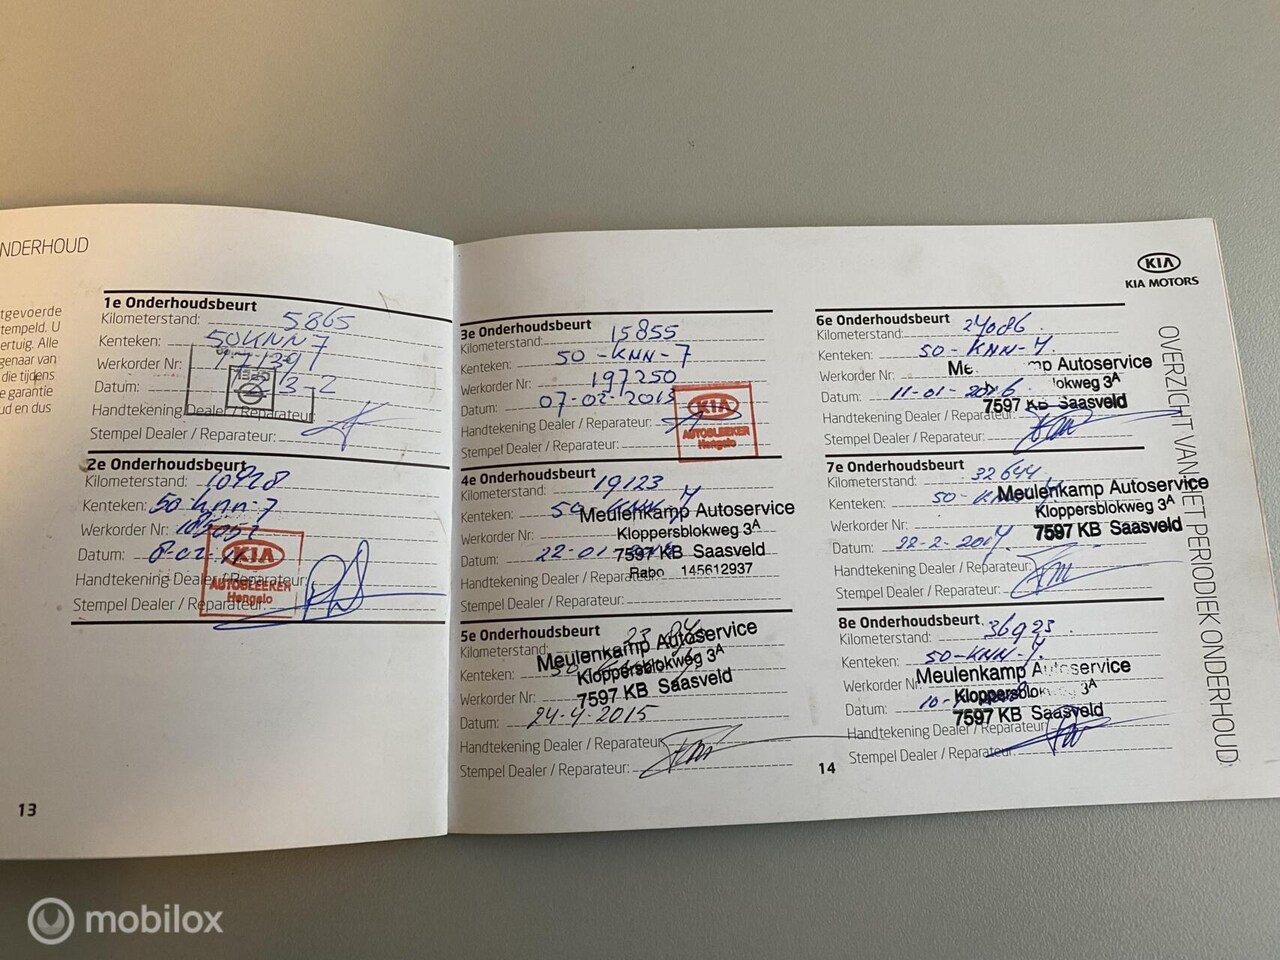 NDERHOUD
tgevoerde
tempeld. U
ertuig. Alle
genaar van
die tijdens
e garantie
ud en dus
1e Onderhoudsbeurt
Kilometerstand: 5865
Kenteken: 50KNN7
Werkorder Nr:
Datum:
Handtekening Dealer / Reparateur:
Stempel Dealer / Reparateur:
2e Onderhoudsbeurt
Kilometerstand: 10928
Kenteken: 50-KNN-7
Werkorder Nr:
Datum:
KIA
AUTOBLEEKER
Hengelo
Handtekening Dealer / Reparateur:
Stempel Dealer / Reparateur:
13
3e Onderhoudsbeurt
Kilometerstand: 15855
Kenteken: 50-KNN-7
Werkorder Nr: 197250
Datum: 07-02-2013
KIA
AUTOBLEEKER
Hengelo
Handtekening Dealer / Reparateur:
Stempel Dealer / Reparateur:
4e Onderhoudsbeurt
Kilometerstand: 19123
Kenteken: 50-KNN-7
Meulenkamp Autoservice
Werkorder Nr:
Kloppersblokweg 3A
Datum: 22-01
7597 KB Saasveld
Rabo 145612937
Handtekening Dealer / Reparateur:
Stempel Dealer / Reparateur:
5e Onderhoudsbeurt
Kilometerstand:
Meulenkamp Autoservice
Kenteken:
Kloppersblokweg 3A
Werkorder Nr:
7597 KB Saasveld
Datum: 24-4-2015
Handtekening Dealer / Reparateur:
Stempel Dealer / Reparateur:
14
KIA
KIA MOTORS
6e Onderhoudsbeurt
Kilometerstand: 24086
Kenteken: 50-KNN-7
Werkorder Nr:
Me mp Autoservice
lokweg 3A
Datum: 11-01-2016
7597 KB Saasveld
Handtekening Dealer / Reparateur:
Stempel Dealer / Reparateur:
7e Onderhoudsbeurt
Kilometerstand: 32644
Kenteken: 50-KNN-7
Meulenkamp Autoservice
Kloppersblokweg 3A
Werkorder Nr:
7597 KB Saasveld
Datum: 22-2-2017
Handtekening Dealer / Reparateur:
Stempel Dealer / Reparateur:
8e Onderhoudsbeurt
Kilometerstand: 36923
Kenteken: 50-KNN-7
Meulenkamp Autoservice
Werkorder Nr:
Kloppersblokweg 3A
Datum:
7597 KB Saasveld
Handtekening Dealer / Reparateur:
Stempel Dealer / Reparateur:
OVERZICHT VAN HET PERIODIEK ONDERHOUD
mobilox